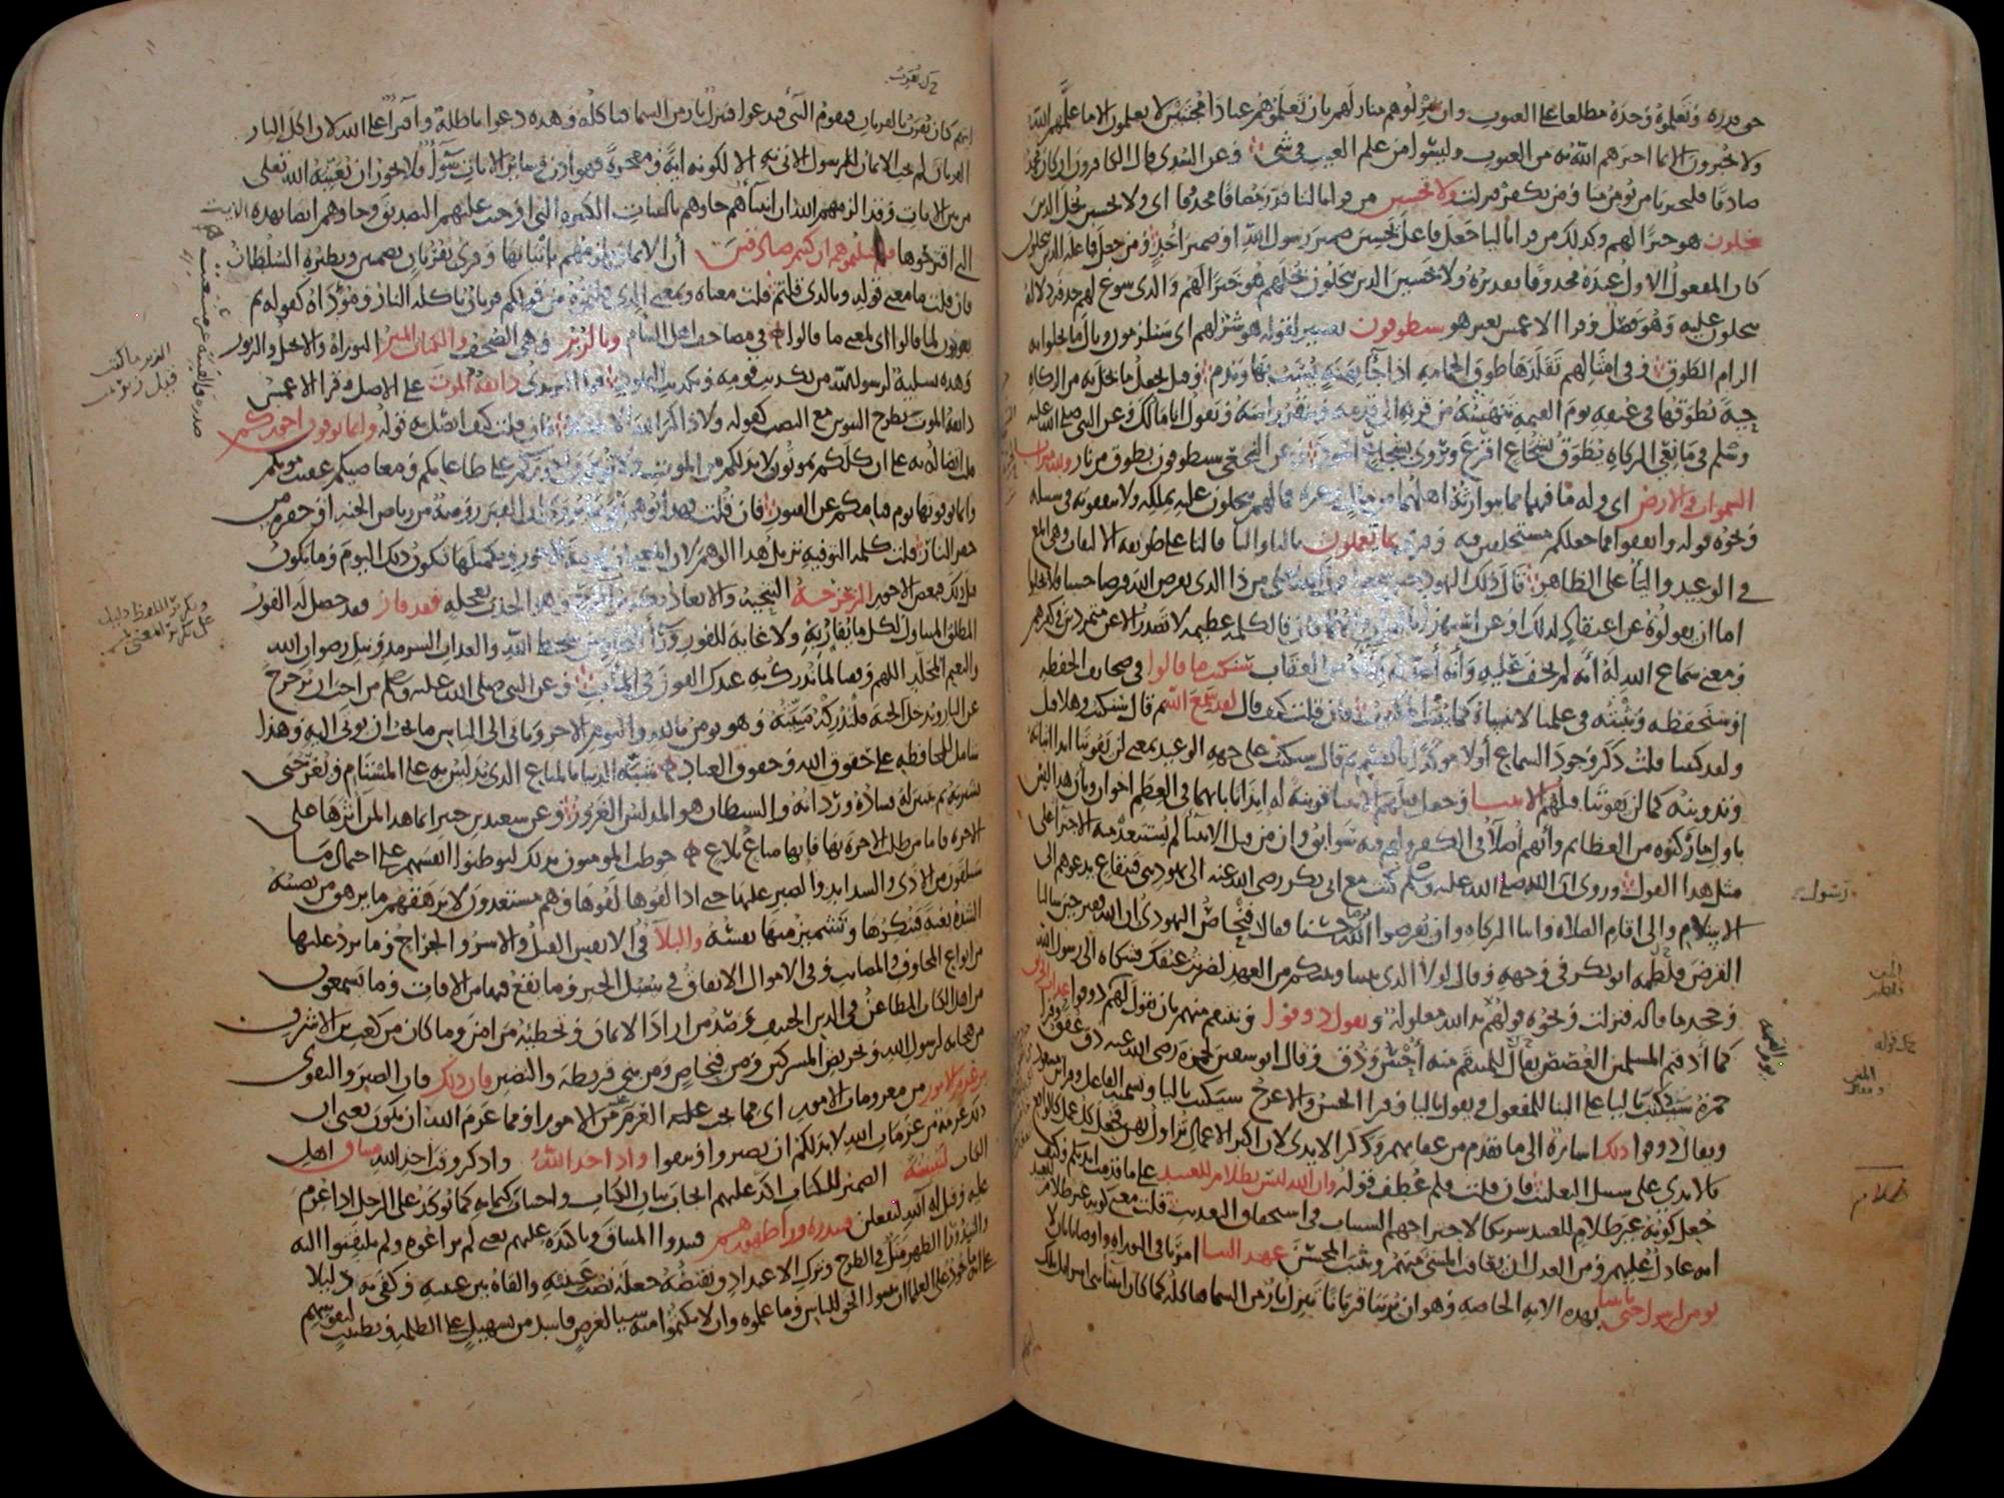 حق قدره وتعلموه وحده مطلعا على الغيوب وان تنزلوهم منازلهم بان تعلموهم عبادا مجتبين لا يعلمون الا ما علمهم الله
ولا يخبرون الا بما اخبرهم الله به من الغيوب وليسوا من علم الغيب في شي وعن السدي قال الكافرون ان كان محمد
صادقا فليخبرنا من يومن منا ومن يكفر فنزلت ولا تحسبن من قرا بالتا قدر مضافا محذوفا اي ولا تحسبن بخل الذين
يبخلون هو خيرا لهم وكذلك من قرا باليا وجعل فاعل يحسبن ضمير رسول الله او ضمير احد ومن جعل فاعله الذين يبخلون
كان المفعول الاول عنده محذوفا تقديره ولا يحسبن الذين يبخلون بخلهم هو خيرا لهم والذي سوغ حذفه دلالة
يبخلون عليه وهو فصل وقرا الاعمش بغير هو سيطوقون تفسير لقوله هو شر لهم اي سيلزمون وبال ما بخلوا به
الزام الطوق وفي امثالهم تقلدها طوق الحمامة اذا جا بهنة يسب بها ويذم وقيل يجعل ما بخل به من الزكاة
حية يطوقها في عنقه يوم القيمة تنهشه من قرنه الى قدمه وتنقر راسه وتقول انا مالك وعن النبي صلى الله عليه
وسلم في مانع الزكاة يطوق بشجاع اقرع وروي بشجاع اسود وعن النخعي سيطوقون بطوق من نار ولله ميراث
السموات والارض اي وله ما فيها مما يتوارثه اهلهما من مال وغيره فما لهم يبخلون عليه بملكه ولا ينفقونه في سبيله
ونحوه قوله وانفقوا مما جعلكم مستخلفين فيه وقرئ بما تعملون بالتا واليا فالتا على طريقة الالتفات وهي ابلغ
في الوعيد واليا على الظاهر قال ذلك اليهود حين سمعوا قول الله تعالى من ذا الذي يقرض الله قرضا حسنا فلا يخلوا
اما ان يقولوه عن اعتقاد لذلك او عن استهزا بالقران وايهما كان فالكلمة عظيمة لا تصدر الا عن متمردين في كفرهم
ومعنى سماع الله له انه لم يخف عليه وانه اعد له كفاه من العقاب سنكتب ما قالوا في صحائف الحفظة
او سنحفظه ونثبته في علمنا لا ننساه كما يثبت المكتوب فان قلت كيف قال لقد سمع الله ثم قال سنكتب وهلا قيل
ولقد كتبنا قلت ذكر وجود السماع اولا موكدا بالقسم ثم قال سنكتب على جهة الوعيد بمعنى لن يفوتنا ابدا اثباته
وتدوينه كما لن يفوتنا قتلهم الانبيا وجعل قتلهم الانبيا قرينة له ايذانا بانهما في العظم اخوان وبان هذا ليس
باول ما ركبوه من العظائم وانهم اصلا في الكفر ولهم فيه سوابق وان من قتل الانبيا لم يستبعد منه الاجترا على
مثل هذا القول وروي ان رسول الله صلى الله عليه وسلم كتب مع ابي بكر رضي الله عنه الى يهود بني قينقاع يدعوهم الى
الاسلام والى اقام الصلاة وايتا الزكاة وان يقرضوا الله قرضا حسنا فقال فنحاص اليهودي ان الله فقير حين سالنا
القرض فلطمه ابو بكر في وجهه وقال لولا الذي بيننا وبينكم من العهد لضربت عنقك فشكاه الى رسول الله
وجحد ما قاله فنزلت ونحوه قولهم يد الله مغلولة ونقول ذوقوا وننتقم منهم بان نقول لهم ذوقوا عذاب الحريق
كما اذقتم المسلمين الغصص يقال للمنتقم منه احس وذق وقال ابو سفين لحمزة رضي الله عنه ذق عقق وقرا
حمزة سيكتب باليا على البنا للمفعول ويقول باليا وقرا الحسن والاعرج سيكتب باليا وتسمية الفاعل وقرا ابن مسعود
ويقال ذوقوا ذلك اشارة الى ما تقدم من عقابهم وذكر الايدي لان اكثر الاعمال تزاول بهن فجعل كل عمل كالواقع
بالايدي على سبيل التغليب فان قلت فلم عطف قوله وان الله ليس بظلام للعبيد على ما قدمت ايديكم وكيف
جعل كونه غير ظلام للعبيد شريكا لاجتراحهم السيات في استحقاق التعذيب قلت معنى كونه غير ظلام للعبيد
انه عادل عليهم ومن العدل ان يعاقب المسي منهم ويثيب المحسن عهد الينا امرنا في التوراة واوصانا بان لا
نومن لرسول حتى ياتينا بهذه الاية الخاصة وهو ان يرينا قربانا تنزل نار من السما فتاكله كما كان انبيا بني اسرايل تلك
رسول
ظلام
ايتهم كان يقرب بالقربان فيقوم النبي فيدعوا فتنزل نار من السما فتاكله وهذه دعوا باطلة وافترا على الله لان اكل النار
القربان لم يوجب الايمان للرسول الاتي به الا لكونه اية ومعجزة فهو اذن وسائر الايات سوا ولا يجوز ان يعينه الله تعلى
من بين الايات وقد الزمهم الله ان انبياهم جاوهم بالبينات الكثيرة التي اوجبت عليهم التصديق وجاوهم ايضا بهذه الاية
التي اقترحوها فلم قتلتموهم ان كنتم صادقين ان الايمان يلزمهم باتيانها وقرئ بقربان بضمتين ونظيره السلطان
فان قلت ما معنى قوله وبالذي قلتم قلت معناه وبمعنى الذي قلتموه من قولكم قربان تاكله النار ومؤداه كقوله ثم
يعودون لما قالوا اي لمعنى ما قالوا في مصاحف اهل الشام وبالزبر وهي الصحف والكتاب المنير التوراة والانجيل والزبور
وهذه تسلية لرسول الله من تكذيب قومه وتكذيب اليهود وقرا اليزيدي ذائقة الموت على الاصل وقرا الاعمش
ذائقة الموت بطرح التنوين مع النصب كقوله ولا ذاكر الله الا قليلا فان قلت كيف اتصل به قوله وانما توفون اجوركم
قلت اتصاله به على ان كلكم تموتون ولا بد لكم من الموت ولا توفون اجوركم على طاعاتكم ومعاصيكم عقيب موتكم
وانما توفونها يوم قيامكم عن القبور فان قلت فهذا يوهم نفي ما يروى ان القبر روضة من رياض الجنة او حفرة من
حفر النار قلت كلمة التوفية تزيل هذا الوهم لان المعنى ان توفية الاجور وتكميلها يكون ذلك اليوم وما يكون
قبل ذلك فبعض الاجور الزحزحة التنحية والابعاد تكرير الزح وهو الجذب بعجلة فقد فاز فقد حصل له الفوز
المطلق المتناول لكل ما يفاز به ولا غاية للفوز ورا النجاة من سخط الله والعذاب السرمد ونيل رضوان الله
والنعيم المخلد اللهم وفقنا لما ندرك به عندك الفوز في المآب وعن النبي صلى الله عليه وسلم من احب ان يزحزح
عن النار ويدخل الجنة فلتدركه منيته وهو يومن بالله واليوم الاخر وياتي الى الناس ما يحب ان يوتى اليه وهذا
شامل للمحافظة على حقوق الله وحقوق العباد شبه الدنيا بالمتاع الذي يدلس به على المستام ويغر حتى
يشتريه ثم يتبين له فساده ورداته والشيطان هو المدلس الغرور وعن سعيد بن جبير انما هذا لمن اثرها على
الاخرة فاما من طلب الاخرة بها فانها متاع بلاغ خوطب المومنون بذلك ليوطنوا انفسهم على احتمال ما
سيلقون من الاذى والشدايد والصبر عليها حتى اذا لقوها لقوها وهم مستعدون لا يرهقهم ما يرهق من يصيبه
الشدة بغتة فينكرها وتشمئز منها نفسه والبلا في الانفس القتل والاسر والجراح وما يرد عليها
من انواع المخاوف والمصائب وفي الاموال الانفاق في سبيل الخير وما يقع فيها من الافات وما يسمعون
من اهل الكتاب المطاعن في الدين الحنيف وصد من اراد الايمان وتخطئة من امن وما كان من كعب بن الاشرف
من هجائه لرسول الله وتحريض المشركين ومن فنحاص ومن بني قريظة والنضير فان ذلك فان الصبر والتقوى
من عزم الامور من معزومات الامور اي مما يجب عليه العزم من الامور او مما عزم الله ان يكون يعني ان
ذلك عزمة من عزمات الله لا بد لكم ان تصبروا وتتقوا واذ اخذ الله واذكر وقت اخذ الله ميثاق اهل
الكتاب لتبيننه الضمير للكتاب اكد عليهم ايجاب بيان الكتاب واجتناب كتمانه كما توكد على الرجل اذا عزم
عليه وقيل له آلله لتفعلن فنبذوه ورا ظهورهم فنبذوا الميثاق وتاكيده عليهم يعني لم يراعوه ولم يلتفتوا اليه
والنبذ ورا الظهر مثل في الطرح وترك الاعتداد ونقيضه جعله نصب عينيه والقاه بين عينيه وكفى به دليلا
على انه ماخوذ على العلما ان يبينوا الحق للناس وما علموه وان لا يكتموا منه شيا لغرض فاسد من تسهيل على الظلمة وتطييب لنفوسهم